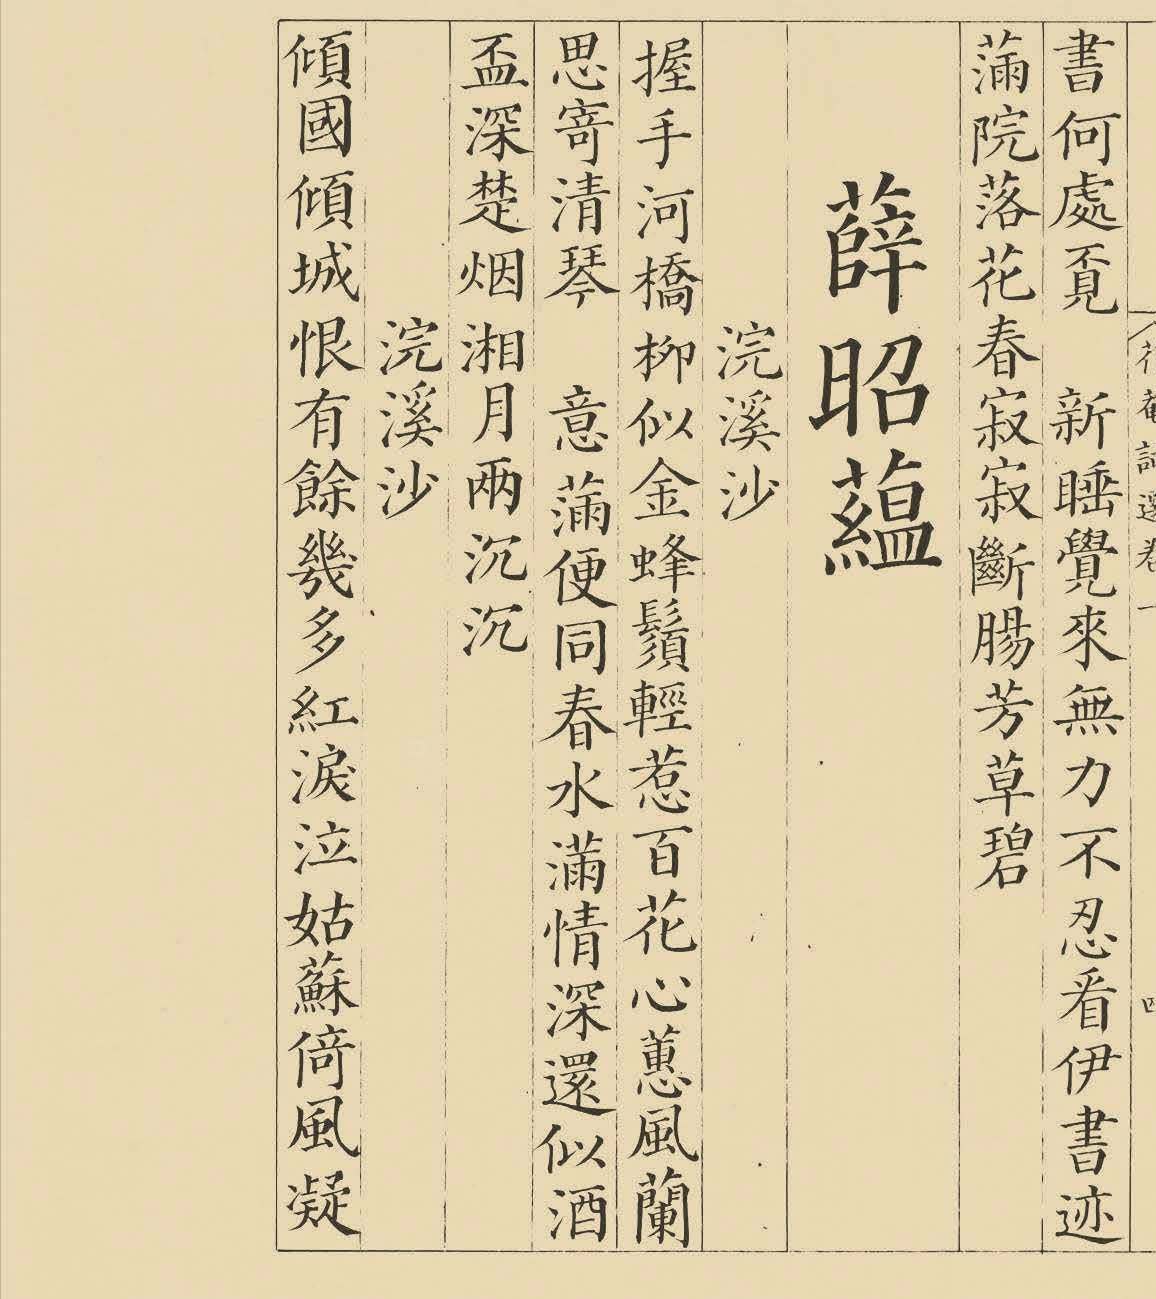 花菴詞選卷一
書何處覔　新睡覺來無力不忍看伊書迹
滿院落花春寂寂斷腸芳草碧
薛昭蘊
浣溪沙
握手河橋柳似金蜂鬚輕惹百花心蕙風蘭
思寄清琴　意滿便同春水滿情深還似酒
盃深楚烟湘月兩沉沉
浣溪沙
傾國傾城恨有餘幾多紅淚泣姑蘇倚風凝